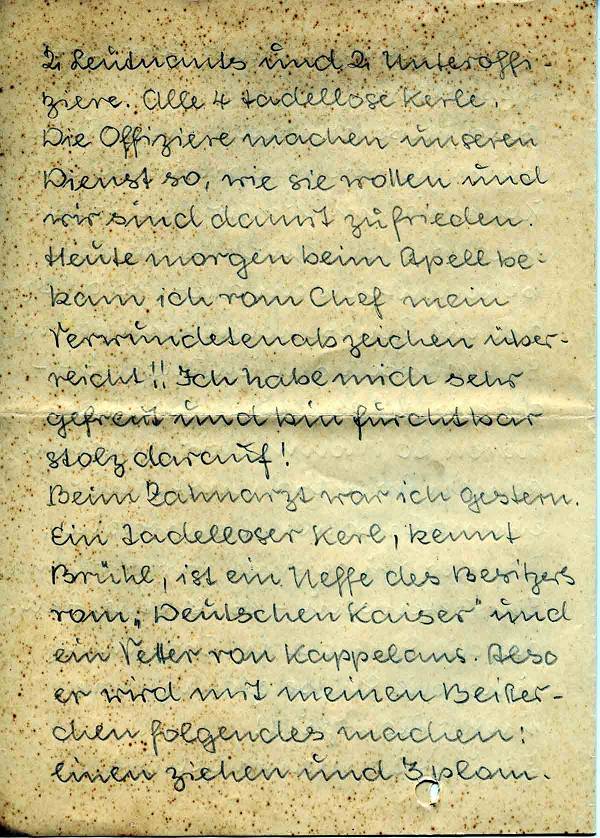 2 Leutnants und 2 Unteroffi-
ziere. Alle 4 tadellose Kerle.
Die Offiziere machen unseren
Dienst so, wie sie wollen und
wir sind damit zufrieden.
Heute morgen beim Apell be-
kam ich vom Chef mein
Verwundetenabzeichen über-
reicht!! Ich habe mich sehr
gefreut und bin furchtbar
stolz darauf!
Beim Zahnarzt war ich gestern.
Ein tadelloser Kerl, kennt
Brühl, ist ein Neffe des Besitzers
vom „Deutschen Kaiser" und
ein Vetter von Kappelaus. Also
er wird mit meinen Beißer-
chen folgendes machen:
Einen ziehen und 3 plom.